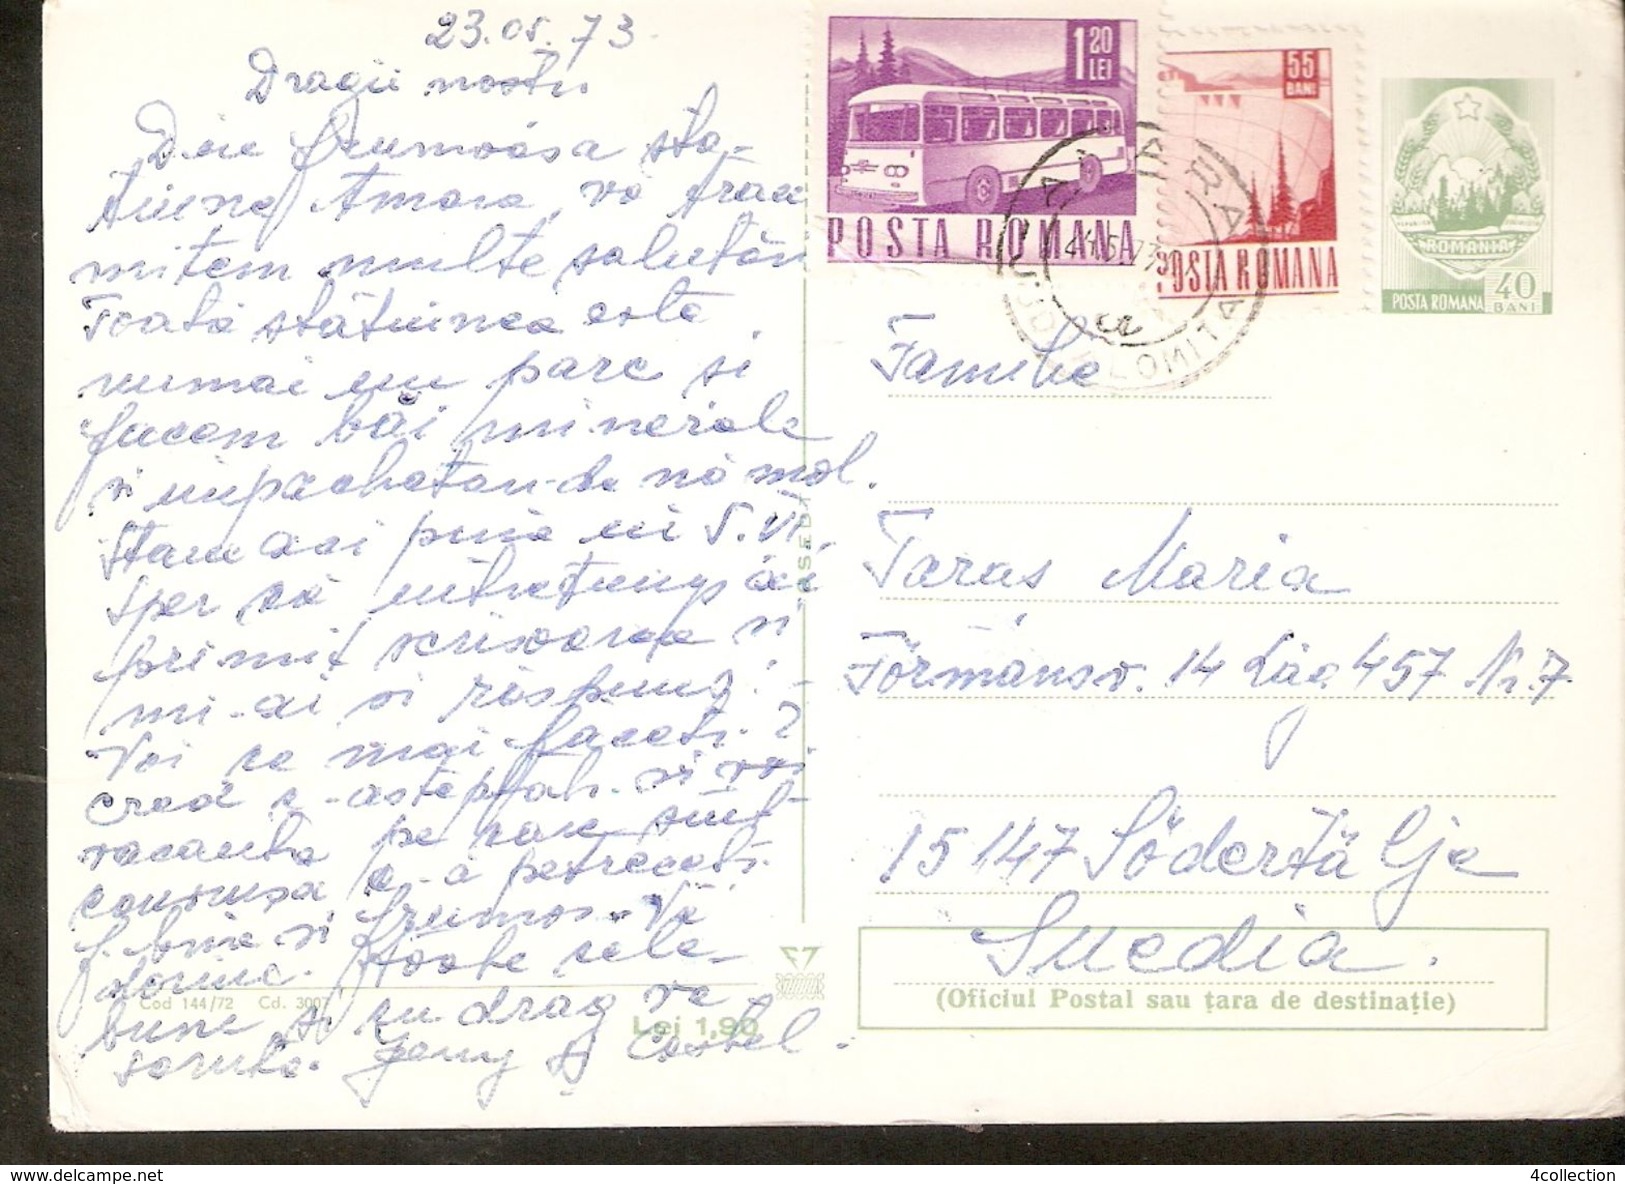 23.05.73
Dragii nostri
Din frumoasa sta-
tiune Amara, va trani
mitem multe salutări
Toată stațiunea este
numai un parc si
facem băi minerale
si impachetari de nămol.
Stam aici pina in 5.VI,
sper că intretimp ai
primit scrisoarea si
mi-ai si răspuns.
Voi ce mai faceti?
cred c-asteptati si voi
vacanta pe care sint
convinsa c-o petreceti
f. bine si frumos. Vă
dorim toate cele
bune si cu drag va
saruta. Jeny si Costel.
1 20
LEI
POSTA ROMANA
55
BANI
POSTA ROMANA
AMARA
JUD. IALOMITA
ROMANIA
POSTA ROMANA
40
BANI
Familie
Taras Maria
Förmansv. 14 Läg 457 Nr. 7
15147 Södertälje
Suedia.
(Oficiul Postal sau țara de destinație)
Cod 144/72 Cd. 3007
Lei 1,90
4collection